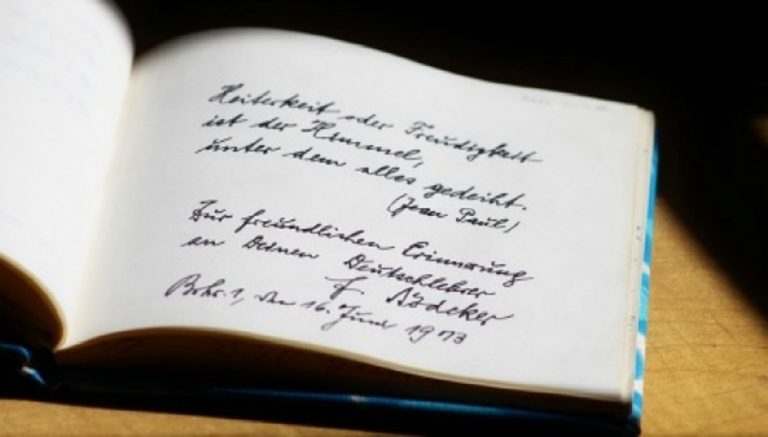 Heiterkeit oder Freudigkeit
ist der Himmel,
unter dem alles gedeiht.
(Jean Paul)
Zur freundlichen Erinnerung
an Deinen Deutschlehrer
F. Rödcker
den 16. Juni 1973